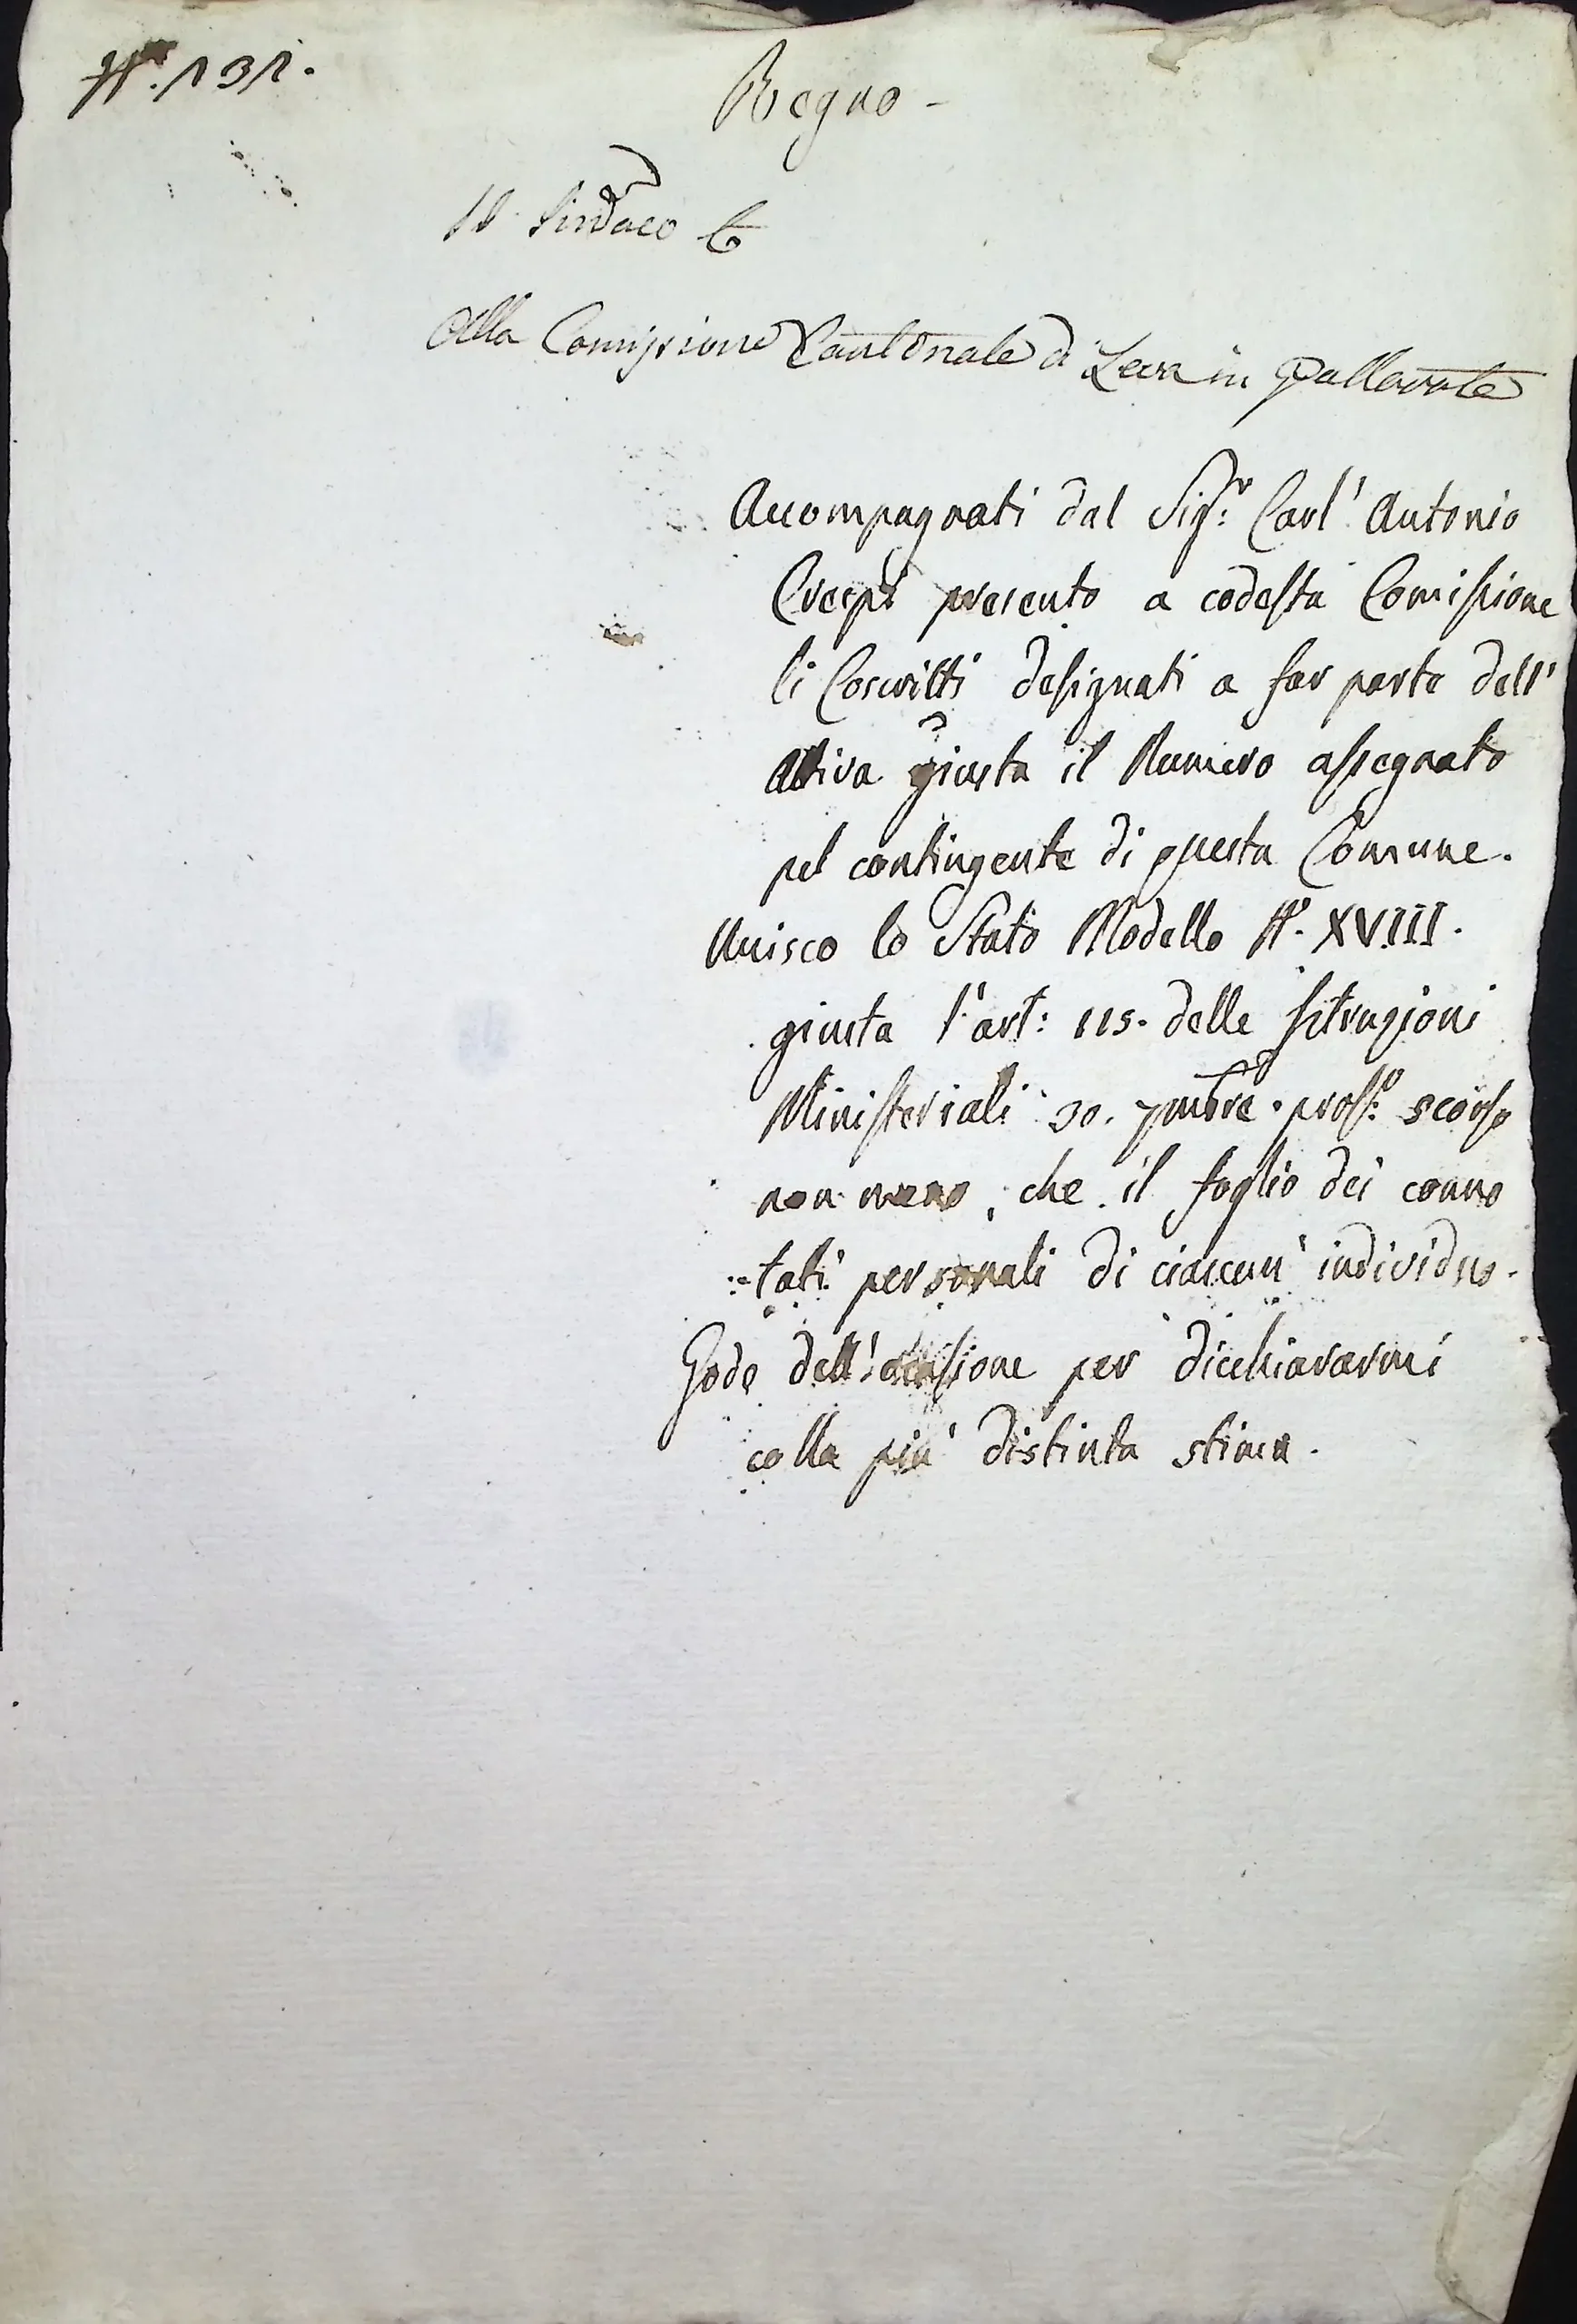 N.° 131.
Regno -
Il Sindaco
Alla Comissione Cantonale di Leva in Gallarate
Accompagnati dal Sig.r Carl' Antonio
Crespi presento a codesta Comissione
li Coscritti designati a far parte dell'
Attiva giusta il Numero assegnato
pel contingente di questa Comune.
Unisco lo Stato Modello N.° XVIII.
giusta l'art: 115. delle Istruzioni
Ministeriali 30. 7mbre pross.o scorso
non meno, che il foglio dei conno
:=tati personali di ciascun' individuo.
Godo dell'occasione per dicchiararmi
colla più distinta stima.